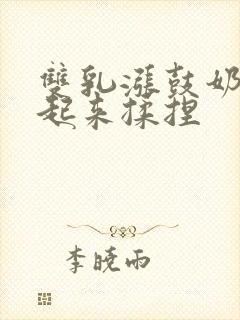 雙乳漲鼓奶
起来揉捏
李曉雨